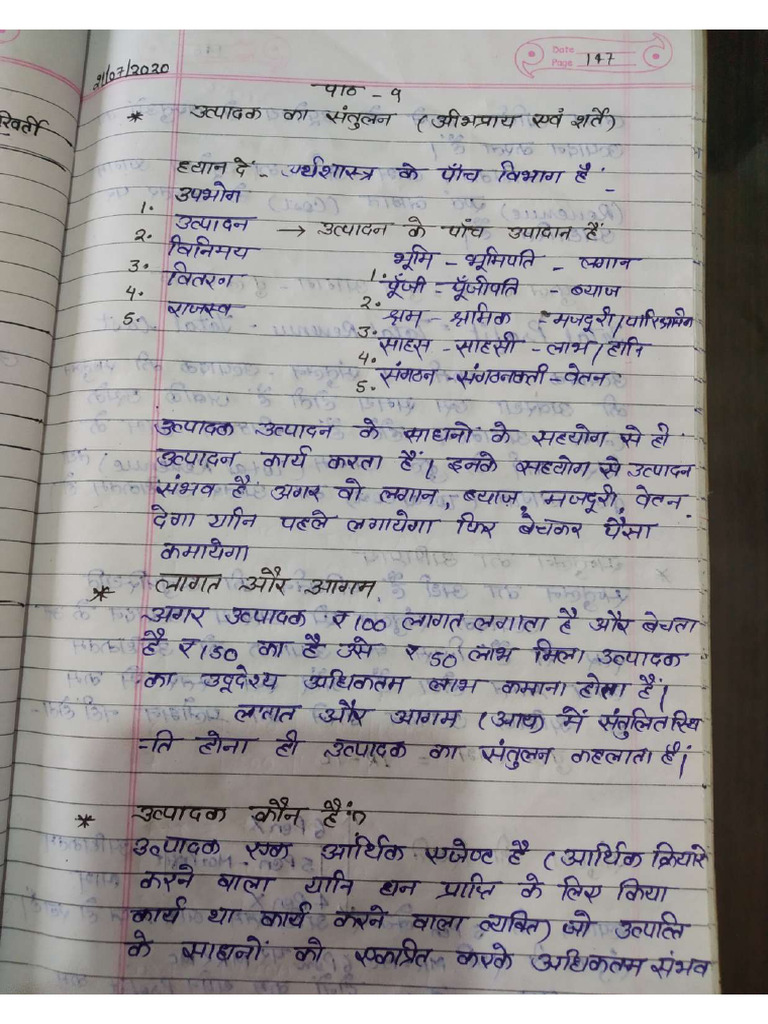 21/07/2020
Date
Page 147
पाठ - 9
* उत्पादक का संतुलन (अभिप्राय एवं शर्तें)
ध्यान दें - अर्थशास्त्र के पाँच विभाग हैं -
1. उपभोग
2. उत्पादन → उत्पादन के पाँच उपादान हैं
3. विनिमय
4. वितरण
5. राजस्व
1. भूमि - भूमिपति - लगान
2. पूँजी - पूँजीपति - ब्याज
3. श्रम - श्रमिक - मजदूरी/पारिश्रमिक
4. साहस - साहसी - लाभ/हानि
5. संगठन - संगठनकर्ता - वेतन
उत्पादक उत्पादन के साधनों के सहयोग से ही
उत्पादन कार्य करता हैं। इनके सहयोग से उत्पादन
संभव है अगर वो लगान, ब्याज, मजदूरी, वेतन
देगा यानि पहले लगायेगा फिर बेचकर पैसा
कमायेगा
* लागत और आगम
अगर उत्पादक ₹100 लागत लगाता है और बेचता
है ₹150 का है उसे ₹50 लाभ मिला उत्पादक
का उद्देश्य अधिकतम लाभ कमाना होता हैं।
लागत और आगम (आय) में संतुलित स्थि
-ति होना ही उत्पादक का संतुलन कहलाता हैं।
* उत्पादक कौन हैं?
उत्पादक एक आर्थिक एजेण्ट है (आर्थिक क्रियाएं
करने वाला यानि धन प्राप्ति के लिए किया
कार्य था कार्य करने वाला व्यक्ति) जो उत्पत्ति
के साधनों को एकत्रित करके अधिकतम संभव